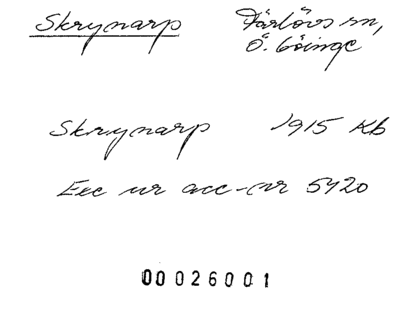 Skrynarp Färlövs sn,
Ö. Göinge
Skrynarp 1915 Kb
Exc ur acc-nr 5420
00026001